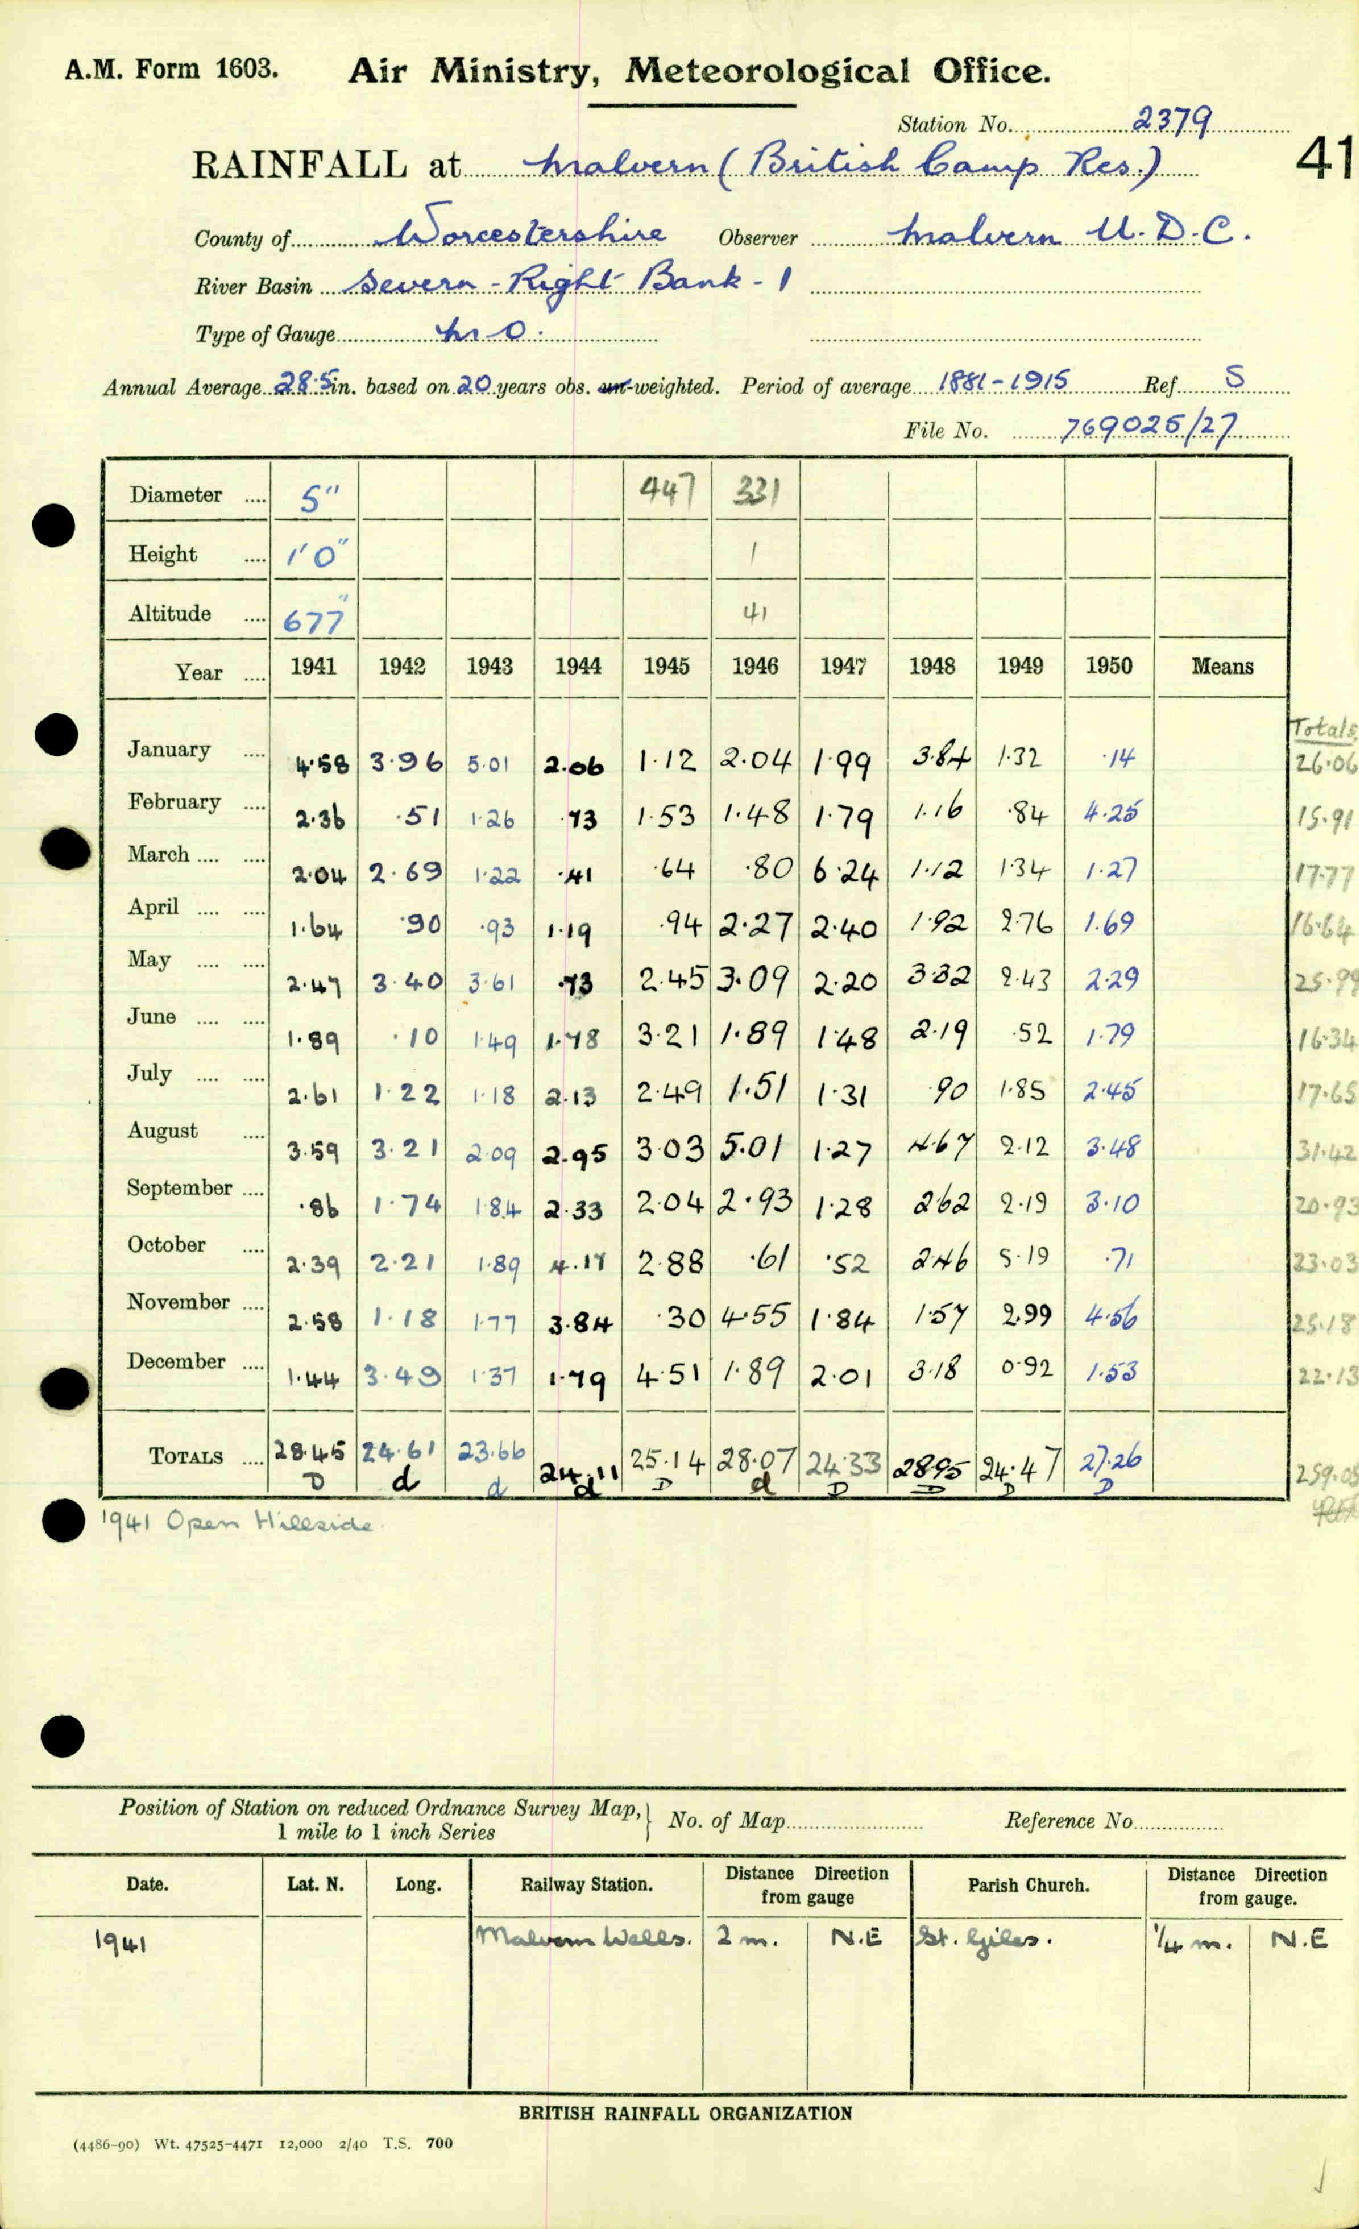 A.M. Form 1603. Air Ministry, Meteorological Office.
Station No. 2379
RAINFALL at Malvern (British Camp Res.) 41
County of Worcestershire Observer Malvern U.D.C.
River Basin Severn - Right Bank - 1
Type of Gauge M O.
Annual Average 28.5 in. based on 20 years obs. un-weighted. Period of average 1881-1915 Ref. S
File No. 769025/27
Diameter .... 5" 447 331
Height .... 1'0" 1
Altitude .... 677" 41
Year .... 1941 1942 1943 1944 1945 1946 1947 1948 1949 1950 Means
Totals
January .... 4.58 3.96 5.01 2.06 1.12 2.04 1.99 3.84 1.32 .14 26.06
February .... 2.36 .51 1.26 .73 1.53 1.48 1.79 1.16 .84 4.25 15.91
March .... .... 2.04 2.69 1.22 .41 .64 .80 6.24 1.12 1.34 1.27 17.77
April .... .... 1.64 .90 .93 1.19 .94 2.27 2.40 1.92 2.76 1.69 16.64
May .... .... 2.47 3.40 3.61 .73 2.45 3.09 2.20 3.32 2.43 2.29 25.99
June .... .... 1.89 .10 1.49 1.78 3.21 1.89 1.48 2.19 .52 1.79 16.34
July .... .... 2.61 1.22 1.18 2.13 2.49 1.51 1.31 .90 1.85 2.45 17.65
August .... 3.59 3.21 2.09 2.95 3.03 5.01 1.27 4.67 2.12 3.48 31.42
September .... .86 1.74 1.84 2.33 2.04 2.93 1.28 2.62 2.19 3.10 20.93
October .... 2.39 2.21 1.89 4.17 2.88 .61 .52 2.46 5.19 .71 23.03
November .... 2.58 1.18 1.77 3.84 .30 4.55 1.84 1.57 2.99 4.56 25.18
December .... 1.44 3.49 1.37 1.79 4.51 1.89 2.01 3.18 0.92 1.53 22.13
TOTALS .... 28.45 24.61 23.66 24.11 25.14 28.07 24.33 28.95 24.47 27.26 259.05
D d d d D d D D D D
1941 Open Hillside.
Position of Station on reduced Ordnance Survey Map, } No. of Map Reference No.
1 mile to 1 inch Series
Date. Lat. N. Long. Railway Station. Distance Direction from gauge Parish Church. Distance Direction from gauge.
1941 Malvern Wells. 2 m. N.E St. Giles. 1/4 m. N.E
BRITISH RAINFALL ORGANIZATION
(4486-90) Wt. 47525-4471 12,000 2/40 T.S. 700